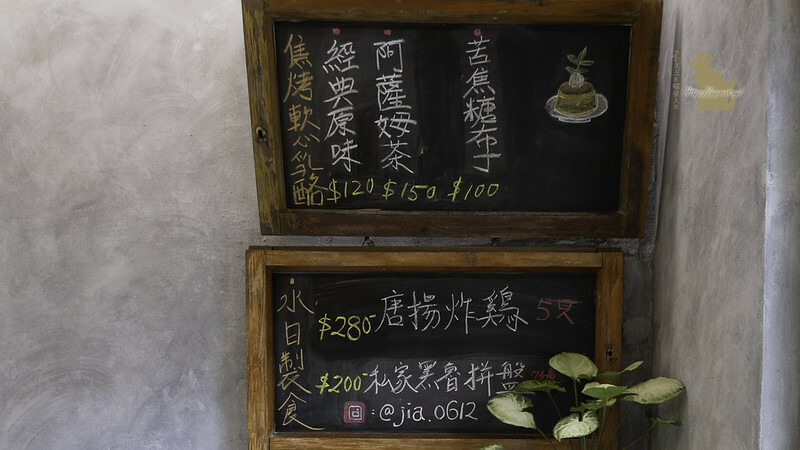 焦烤軟心乳酪
經典原味
$120
阿薩姆茶
$150
苦焦糖布丁
$100
水日製食
$280 唐揚炸雞 5只
$200 私家黑魯拼盤
:@jia.0612